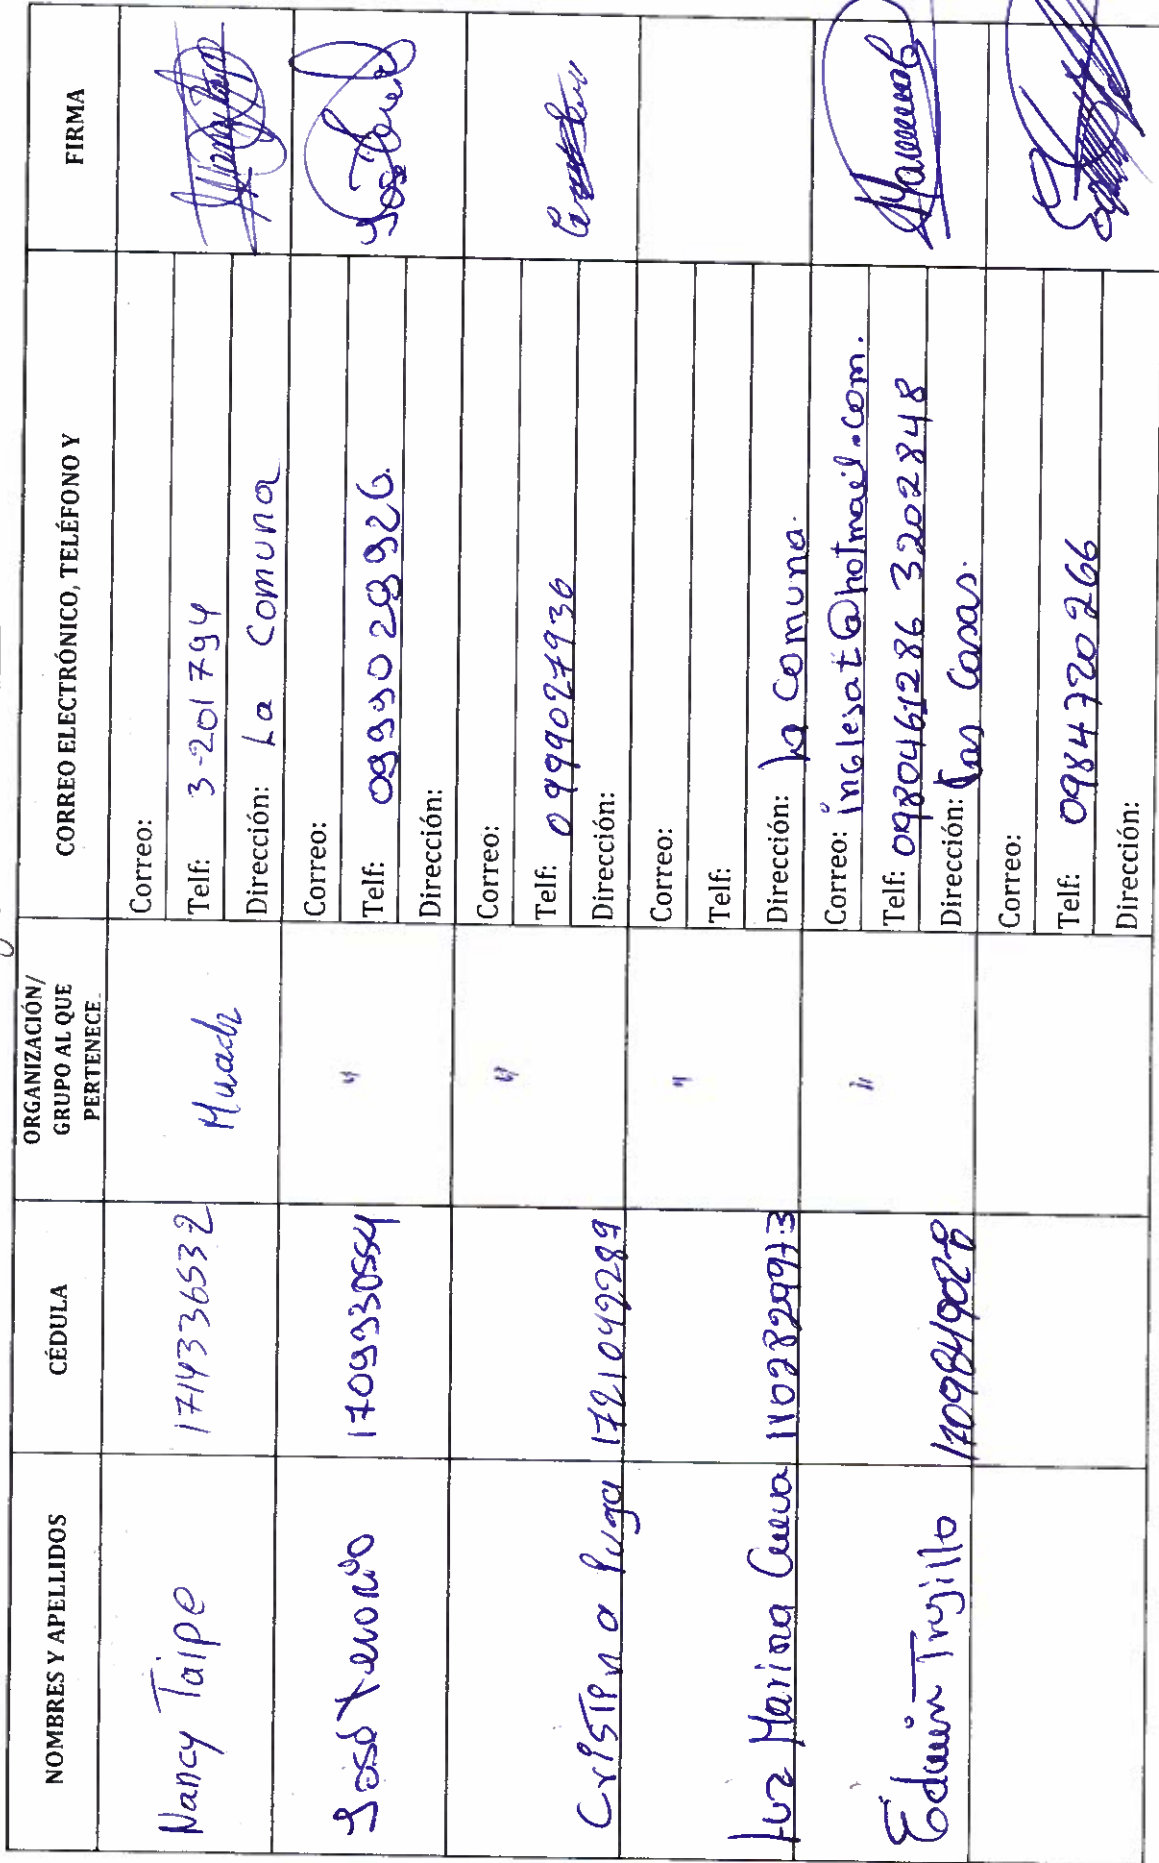 NOMBRES Y APELLIDOS
CÉDULA
ORGANIZACIÓN/
GRUPO AL QUE
PERTENECE
CORREO ELECTRÓNICO, TELÉFONO Y
FIRMA
Nancy Taipe
1714336532
Correo:
Telf: 3-201794
Dirección: La Comuna
1709330554
"
Correo:
Telf: 0999029926
Dirección:
Cristina Puga
1721049289
"
Correo:
Telf: 0999027936
Dirección:
Luz Marina Cueva
1102829973
"
Correo:
Telf:
Dirección: La Comuna.
Edwin Trujillo
"
Correo: inglesat@hotmail.com.
Telf: 0980461286 3202848
Dirección: Las Casas.
Correo:
Telf: 0984720266
Dirección: